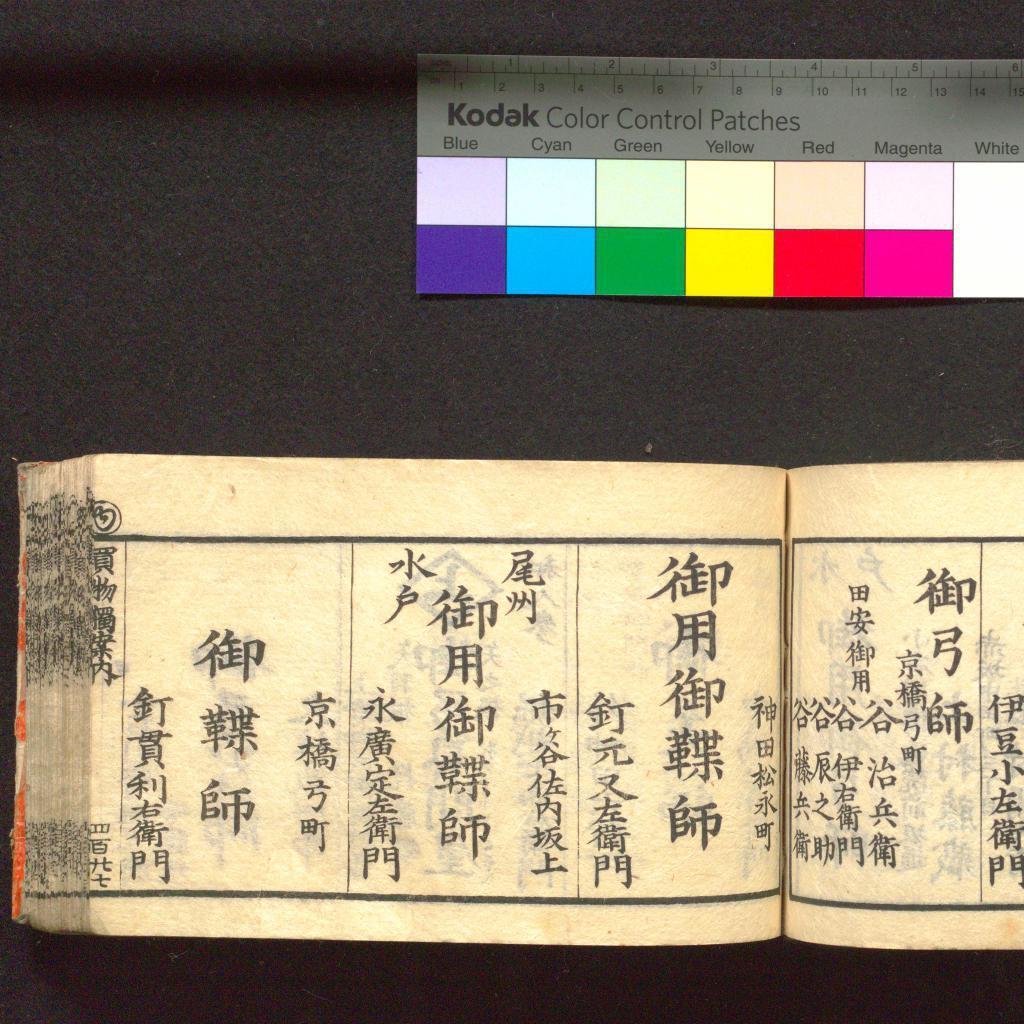 Kodak Color Control Patches
Blue Cyan Green Yellow Red Magenta White
伊豆小左衛門
御弓師
京橋弓町
谷治兵衛
田安御用
谷伊右衛門
谷辰之助
谷藤兵衛
神田松永町
御用御鞢師
釘元又左衛門
市ヶ谷佐内坂上
尾州
御用御鞢師
水戸
永廣定左衛門
京橋弓町
御鞢師
釘貫利右衛門
買物獨案内
四百九十七